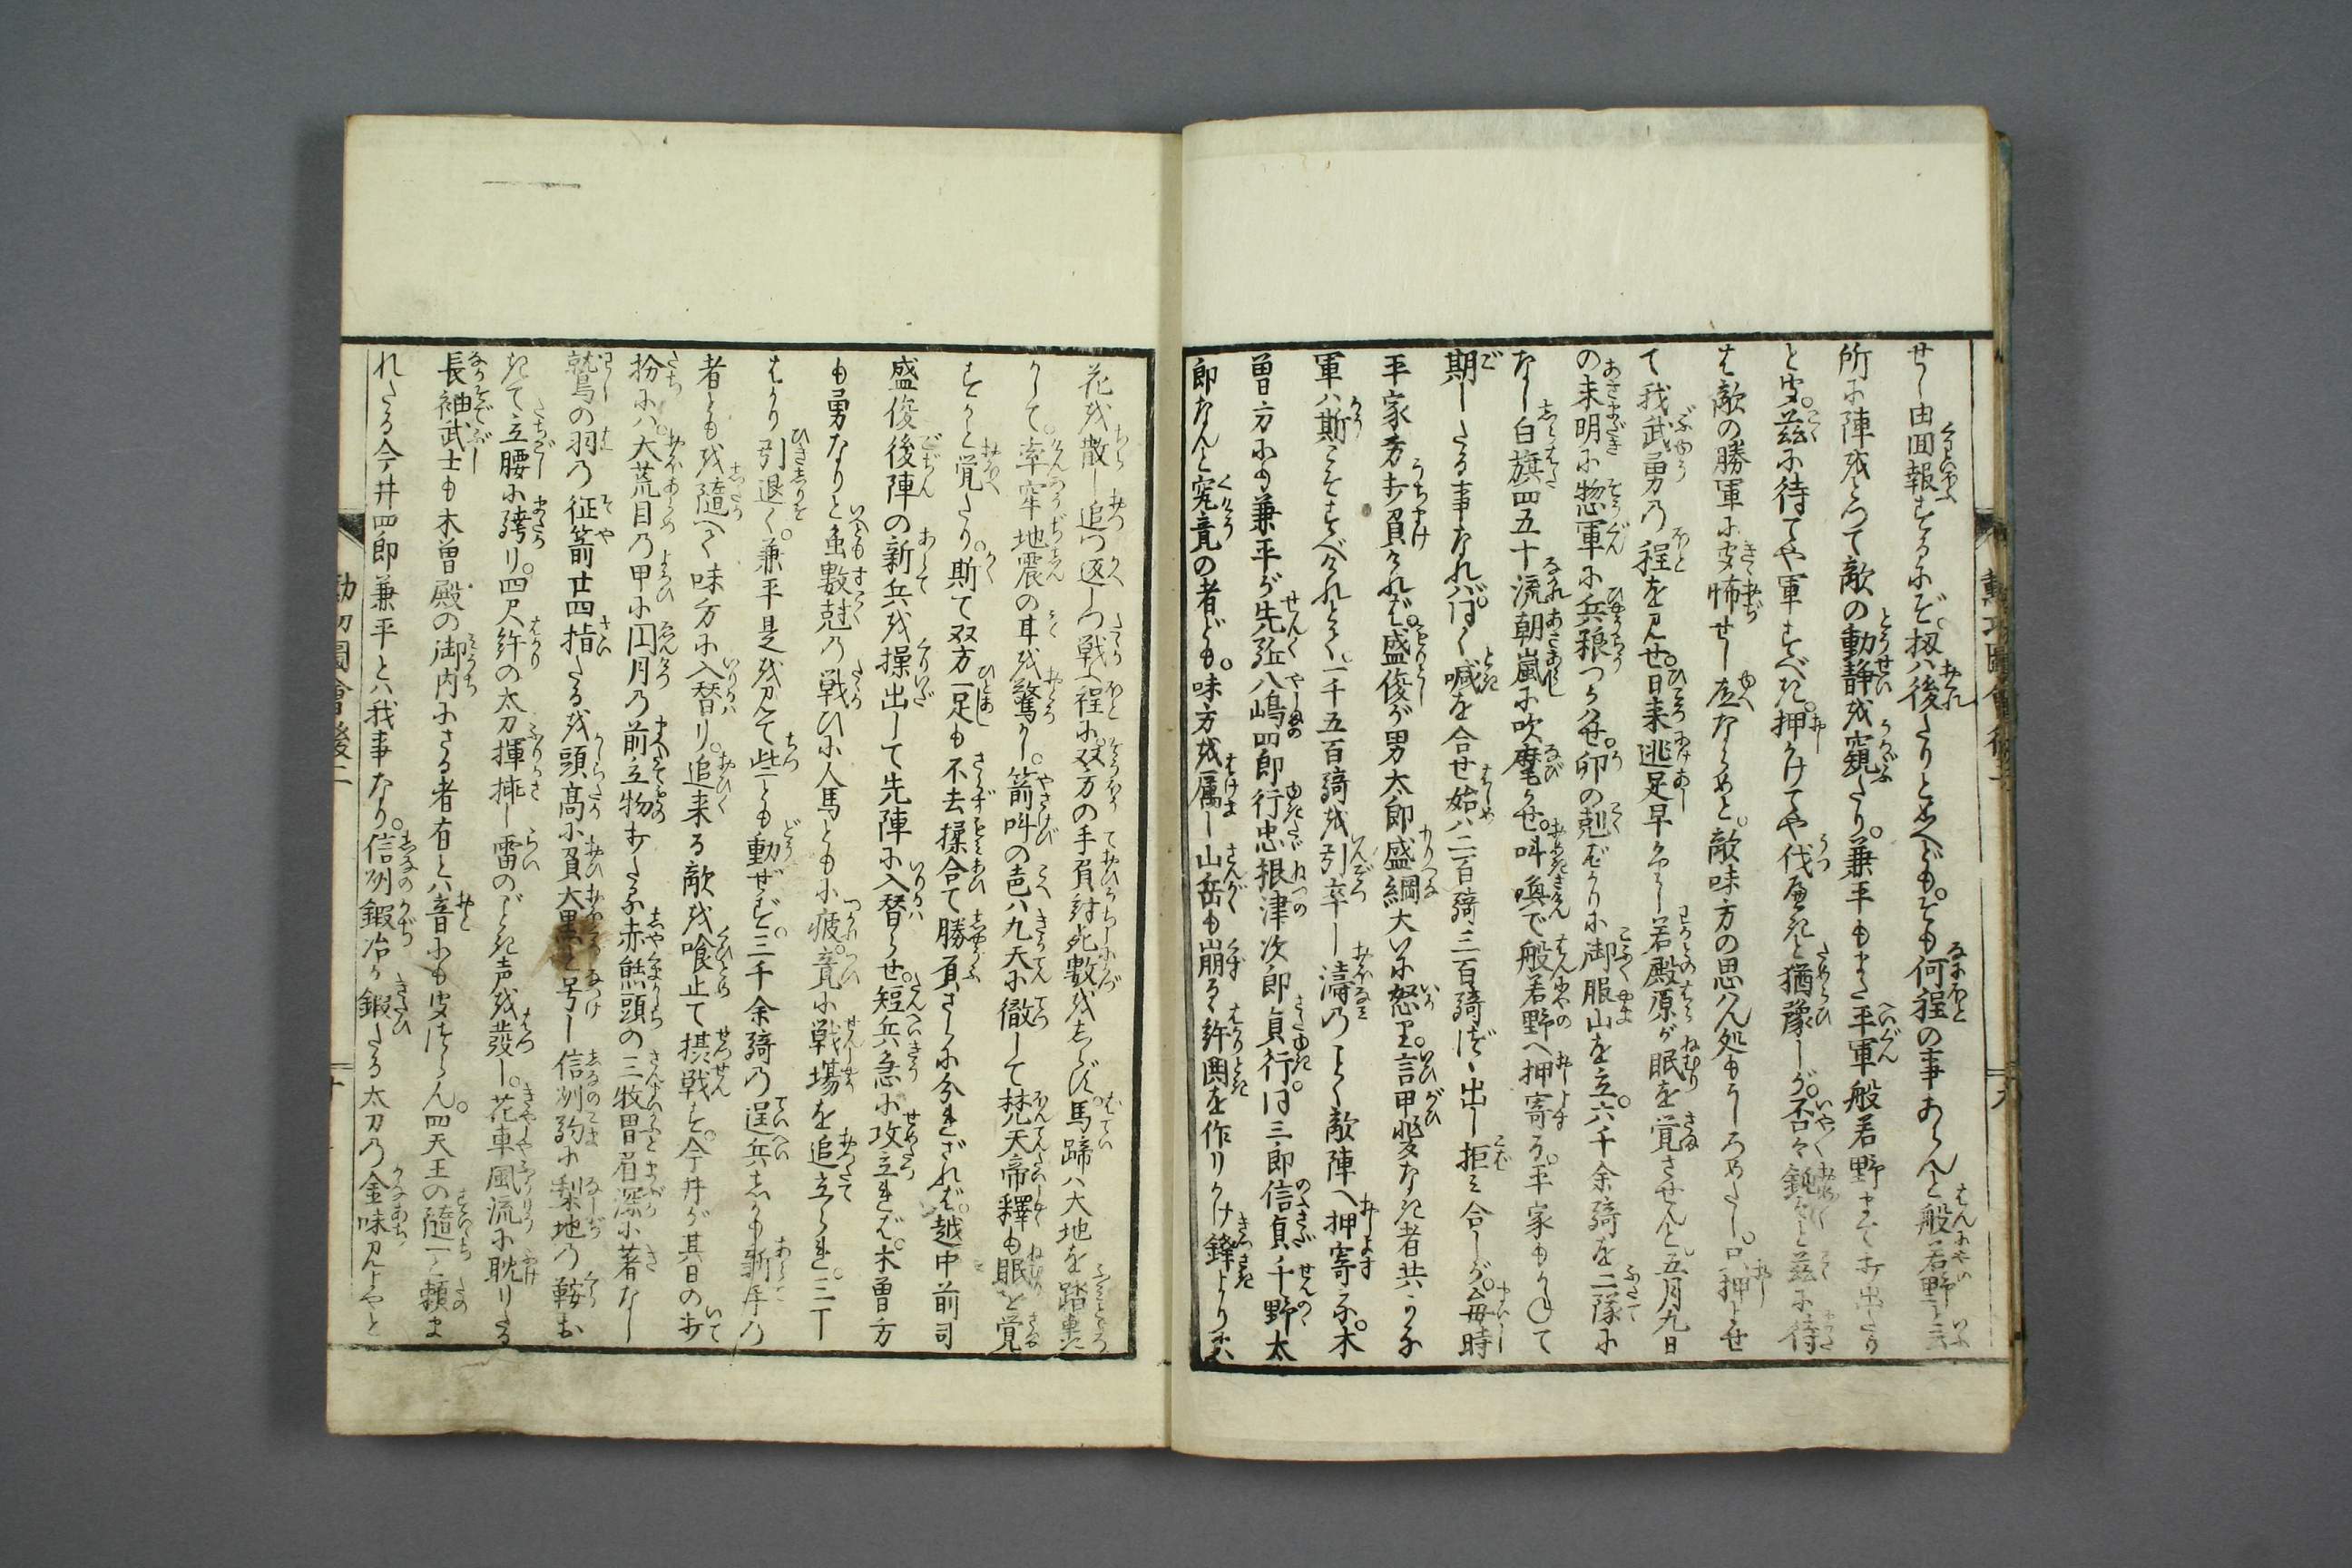 せし由回報するにぞ。扨ハ後たりといへども。そも何程の事あらんと般若野と云
所に陣をとつて敵の動静を窺たり。兼平もまた平軍般若野まで打出たり
と聞。茲に待てや軍すべき。押かけてや伐べきと猶豫しが。否々鈍々と茲に待
ば敵の勝軍に聞怖せし故ならめと。敵味方の思ハん処もうしろめたし。只押よせ
て我武勇の程を見せ。日来逃足早かりし若殿原が眠を覚させんと五月九日
の未明に惣軍に兵粮つかハせ。卯の剋ばかりに御服山を立。六千余騎を二隊に
なし白旗四五十流朝嵐に吹麾かせ。叫喚で般若野へ押寄る。平家もかねて
期したる事なれバ。同く喊を合せ始ハ二百騎三百騎づゝ出し拒ミ合しが。毎時
平家方打負けれバ。盛俊が男太郎盛綱大いに怒り。言甲斐なき者共かな
軍ハ斯こそすべけれとて。一千五百騎を引卒し濤のごとく敵陣へ押寄る。木
曽方にも兼平が先孫八嶋四郎行忠根津次郎貞行。同三郎信貞千野太
郎なんど究竟の者ども。味方を属し山岳も崩るゝ許鬨を作りかけ鋒より火
花を散し追つ返しつ戦ふ程に双方の手負討死数をしらず。馬蹄ハ大地を踏轟
かして。率牢地震の耳を驚かし。箭叫の声ハ九天に徹して梵天帝釋も眠を覚
すかと覚たり。斯て双方一足も不去揉合て勝負さらに分ざれバ。越中前司
盛俊後陣の新兵を操出して先陣に入替らせ。短兵急に攻立れバ。木曽方
も勇なりと雖数剋の戦ひに人馬ともに疲。竟に戦場を追立られ。三丁
ばかり引退く。兼平是を見て些とも動ぜず。三千余騎の逞兵しかも新手の
者ともを隨へて味方に入替り。追来る敵を喰止て摂戦す。今井が其日の打
扮にハ。大荒目の甲に円月の前立物打たる赤熊頭の三牧冑眉深に著なし
鷲の羽の征箭廿四指たるを頭高に負大黒と号し信州駒に梨地の鞍お
きて立腰に跨り。四尺許の太刀揮挑し雷のごとき声を發し。花車風流に耽りたる
長袖武士も木曽殿の御内にさる者有とハ音にも聞つらん。四天王の隨一と頼ま
れたる今井四郎兼平とハ我事なり。信州鍛冶が鍛たる太刀の金味見よやと